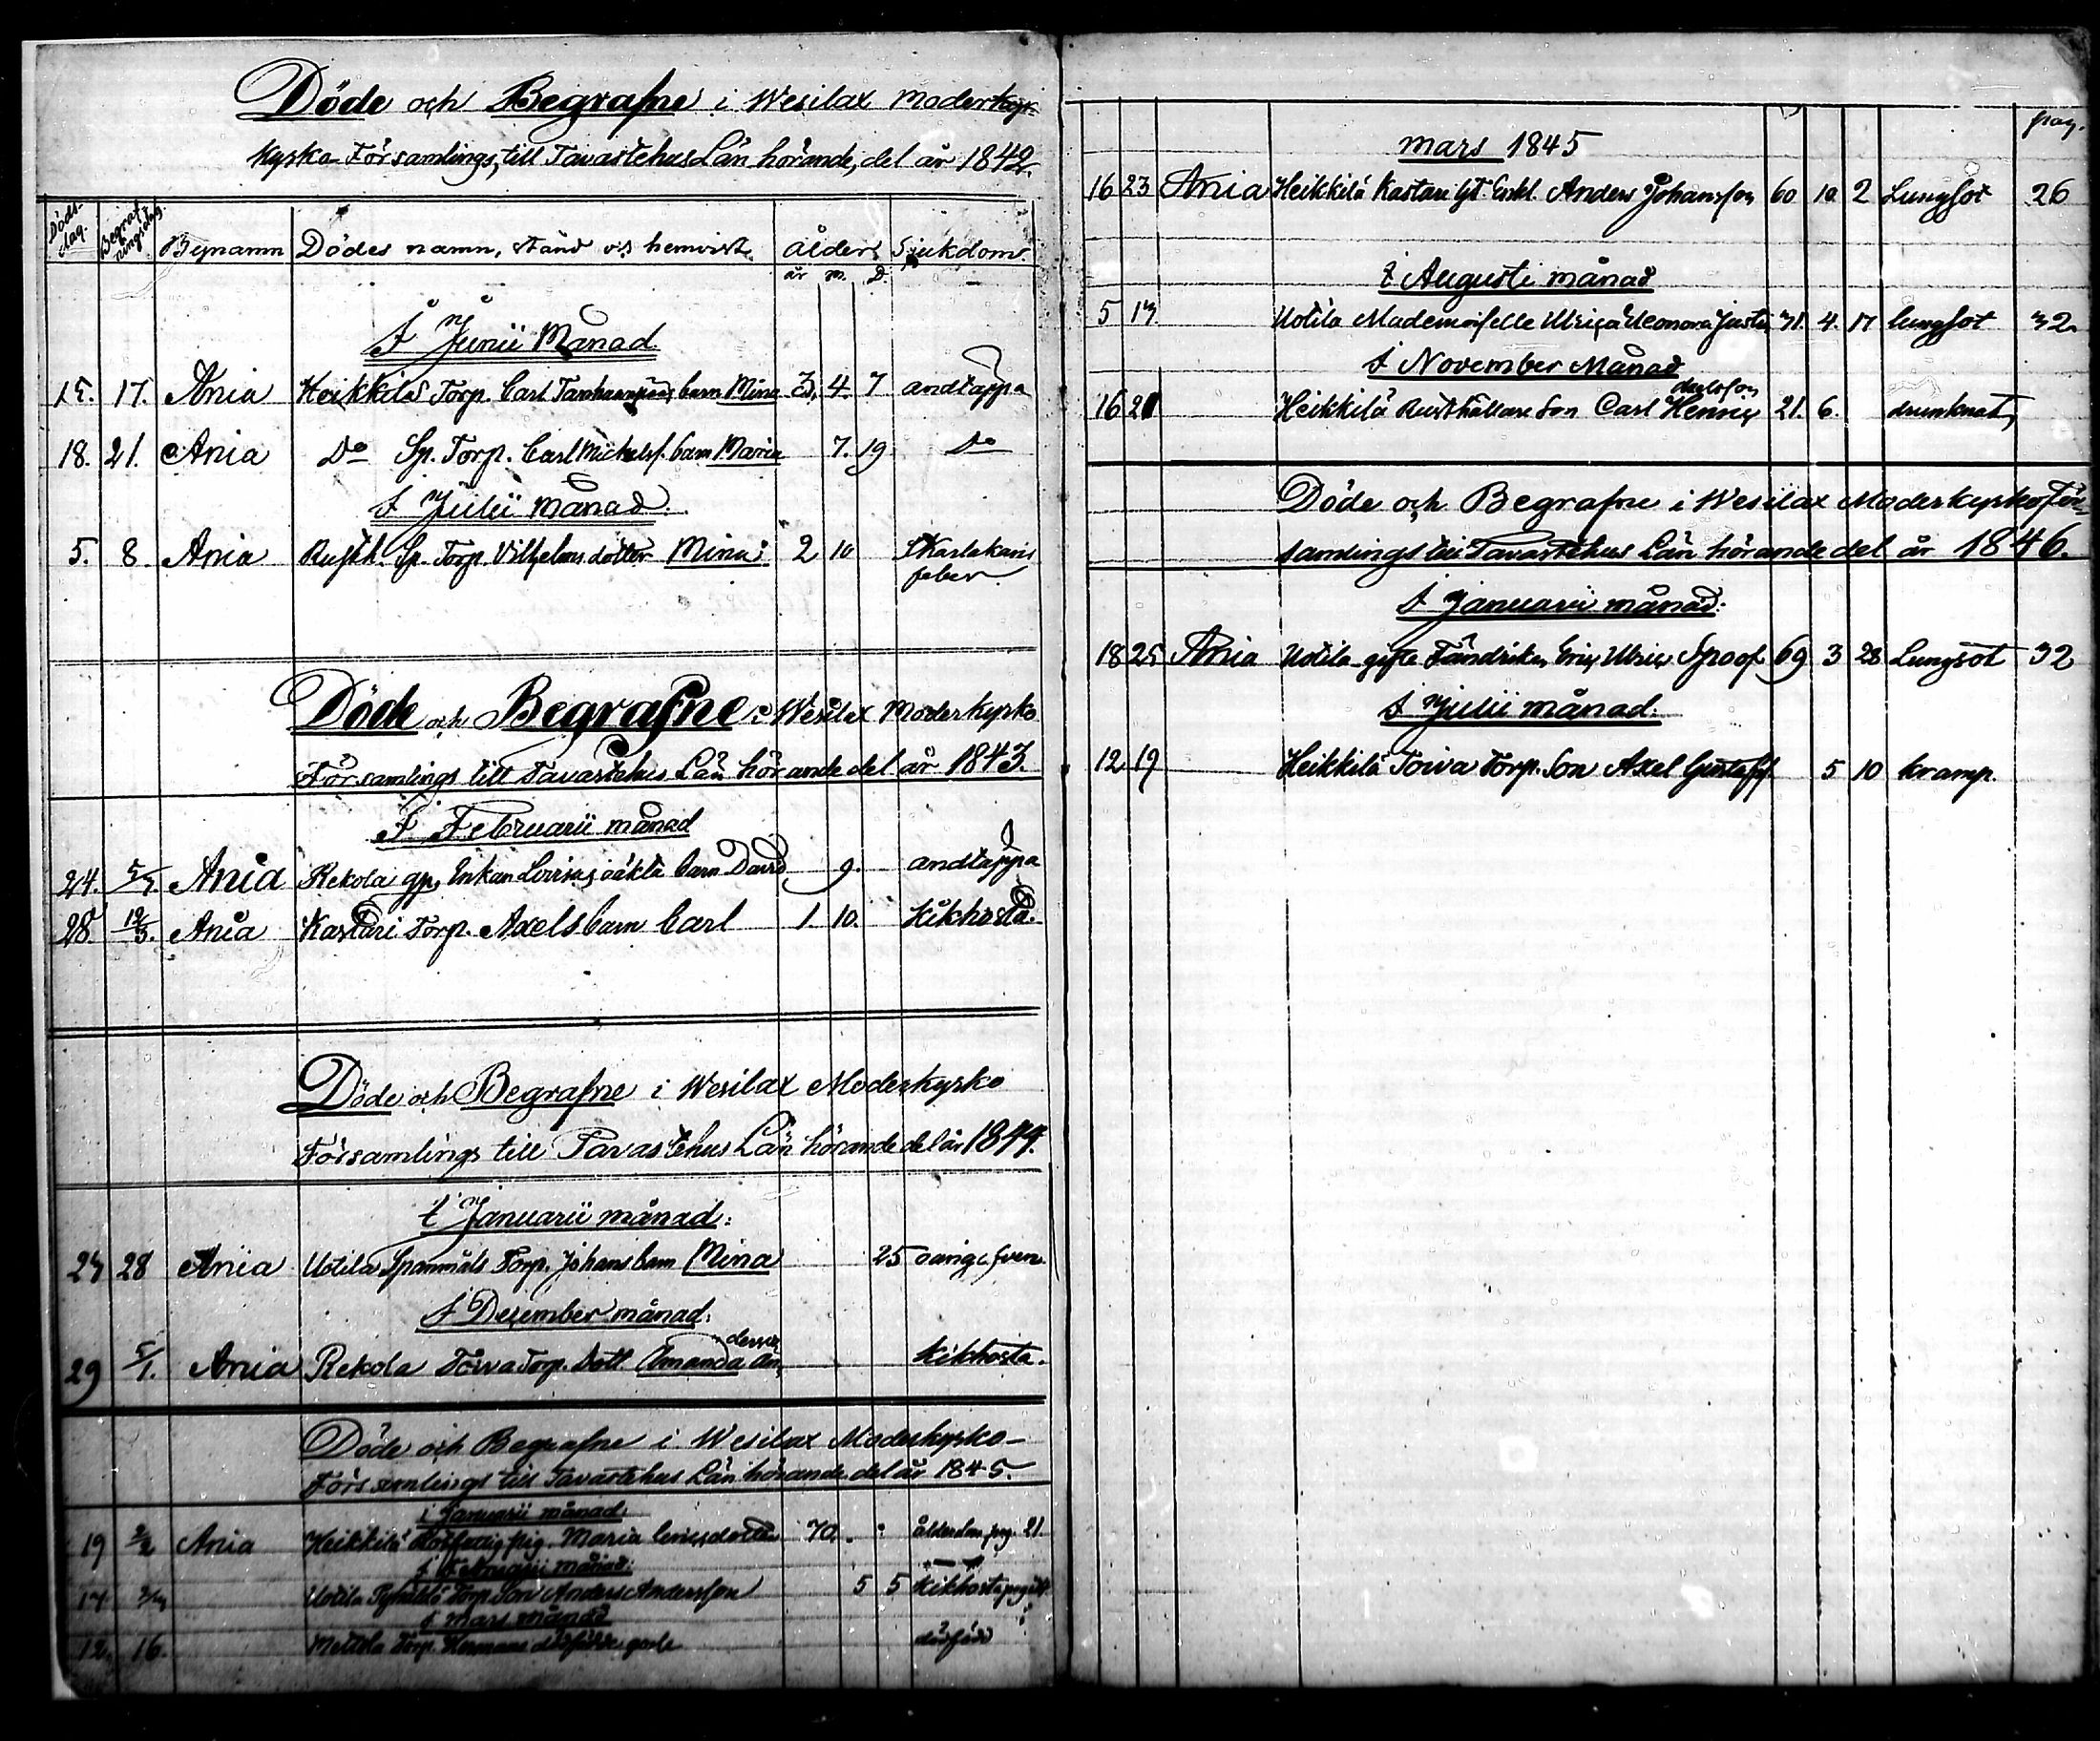 Döde och Begrafne i Wesilax Moderkyr-
kyrko Församlings, till Tavastehus Län hörande, del år 1842.
Döds-dag. Begrafningsdag. Bynamn Dödes namn, stånd och hemvist ålder Sjukdom.
år m. D.
I Junii Månad
15. 17. Ania Heikkilä Torp. Carl barn Mina 3. 4. 7 andtäppa
18. 21. Ania Do Sp. Torp. Carl Michelss. barn Maria 7. 19 Do
I Julii månad.
5. 8. Ania Rusth. Sp. Torp. Vilhelms dotter Mina 2 10 Skarlakans
feber
Döde och Begrafne i Wesilax Moderkyrko
Församlings till Tavastehus Län hörande del år 1843.
I Februarii månad
24. 5/3. Ania Rekola Enkan Lovisas oäkta barn David 9. andtäppa
28. 12/3. Ania Kastari Torp. Axels barn Carl 1. 10. Kikhosta.
Döde och Begrafne i Wesilax Moderkyrko
Församlings till Tavastehus Län hörande del år 1844.
I Januarii månad:
23 28 Ania Uotila Spanmåls Torp. Johans barn Mina 25
I December månad:
29 5/1. Ania Rekola Torp. Dott. Amanda Kikhosta.
Döde och Begrafne i Wesilax Moderkyrko-
Församlings till Tavastehus Län hörande del år 1845.
i Januarii månad:
19 2/2 Ania Heikkilä pig. Maria 70. ålderdom pag. 21
I Februarii månad:
Uotila Torp. Son Anders Andersson 5 5 Kikhosta
I mars månad
12. 16. Mettola Torp. Hermans dödfödde dödfödd
pag.
mars 1845
16 23 Ania Heikkilä Kastari Enkl. Anders Johansson 60 10 2 Lungsot 26
I Augusti månad
5 13 Uotila Mademoiselle Ulrica Eleonora 31. 4. 17 lungsot 32
I November Månad
16 21 Heikkilä Rusthållare Son Carl Henric 21. 6. drunknat
Döde och Begrafne i Wesilax Moderkyrko För-
samlings till Tavastehus Län hörande del år 1846.
I Januarii månad:
18 25 Ania Uotila gifte Fändriken Eric Ulric Spoof 69 3 28 Lungsot 32
I Julii månad:
12 19 Heikkilä Toiva Torp. Son Axel Gustafs. 5 10 kramp.